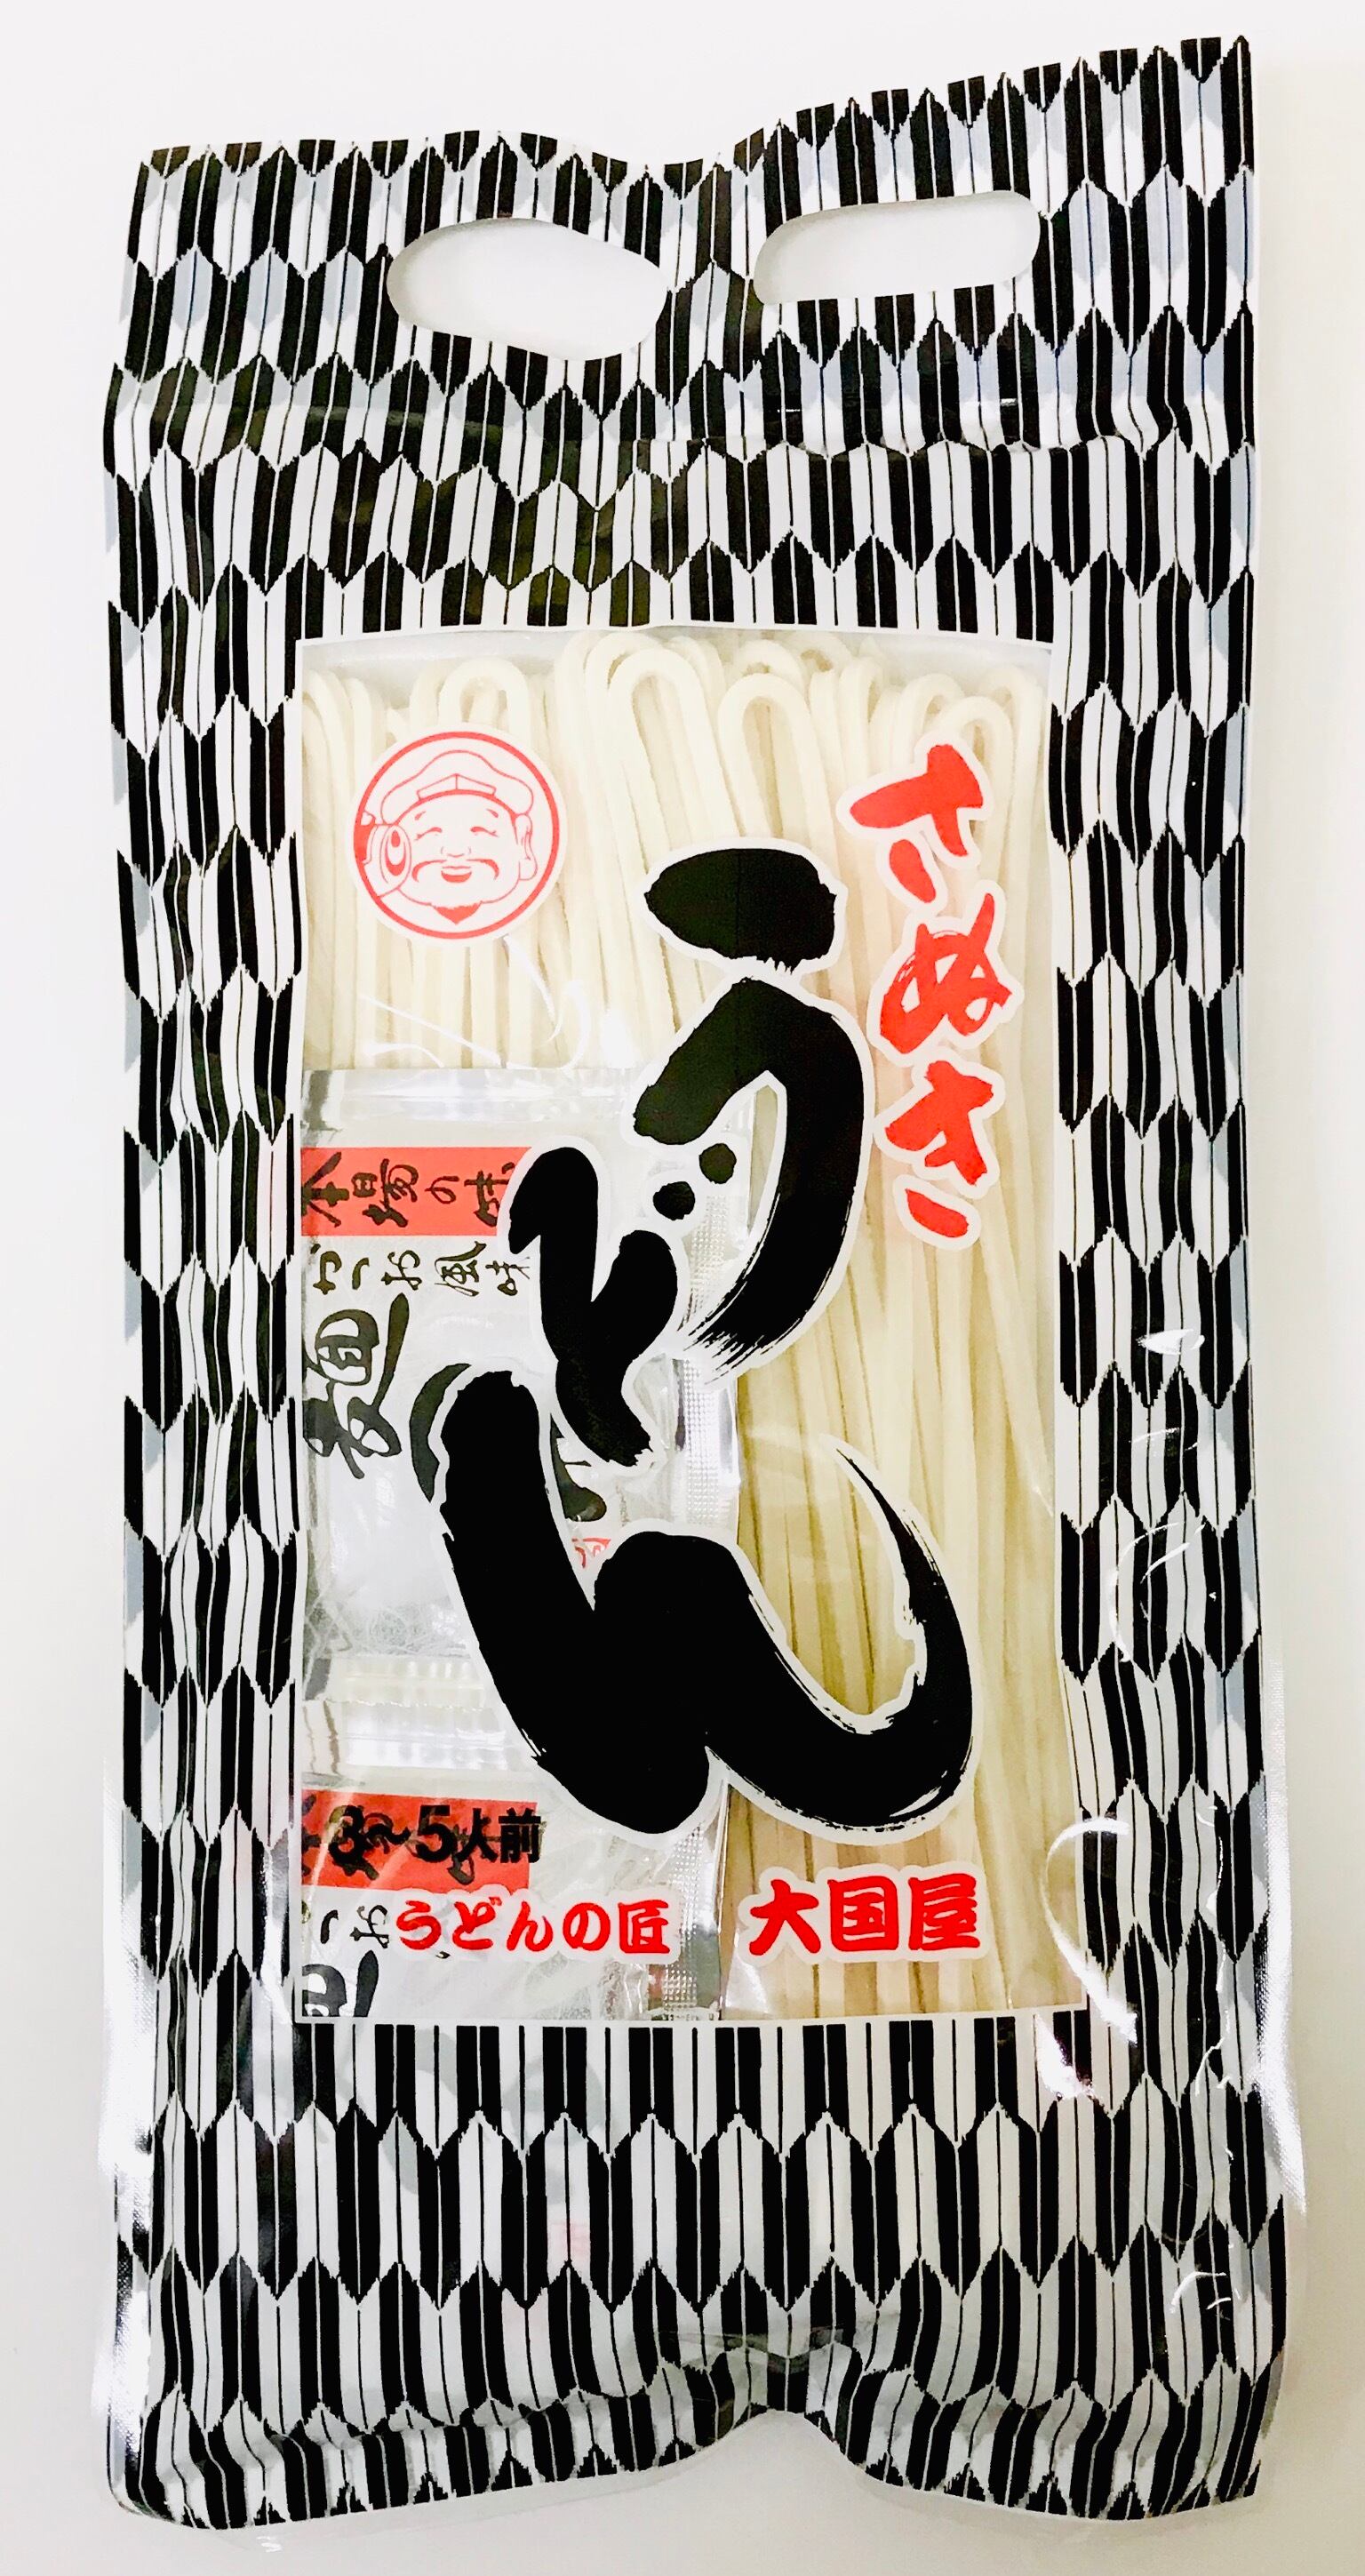 さぬき
うどん
本場の味
かつお風味
麺つゆ
3~5人前
つお
うどんの匠 大国屋